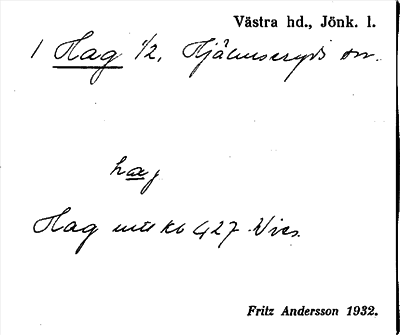 Västra hd., Jönk. l.
1 Hag 1/2, Hjälmseryds sn.
hag
Hag 427
Fritz Andersson 1932.